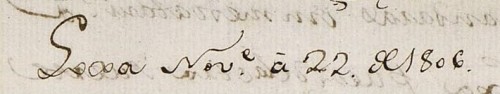 Loxa Nov.e à 22. de 1806.